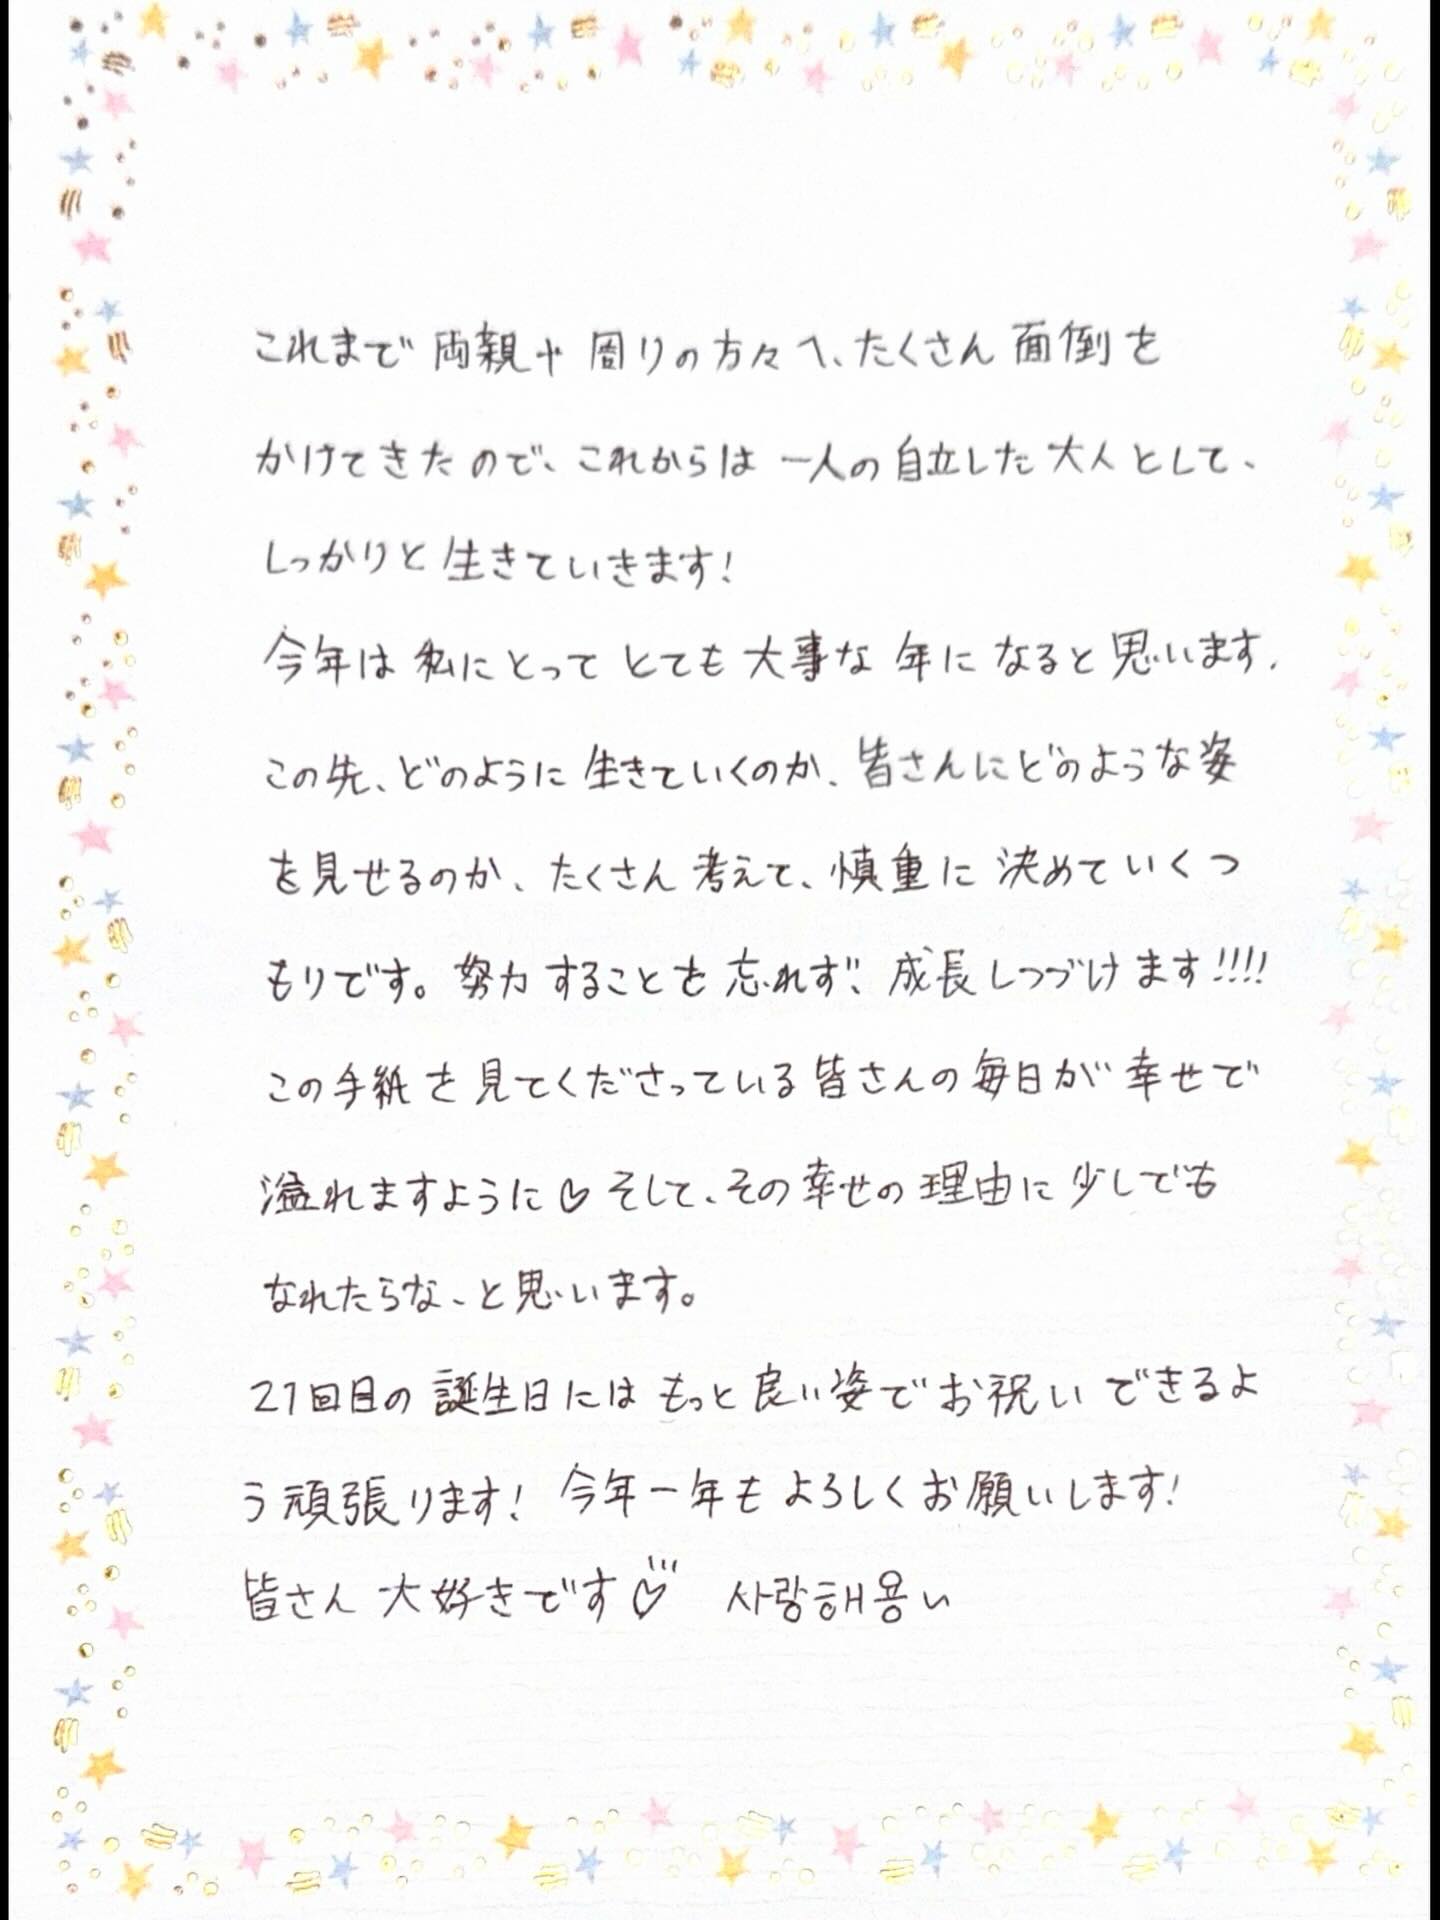 これまで両親や周りの方々へ、たくさん面倒を
かけてきたので、これからは一人の自立した大人として、
しっかりと生きていきます!
今年は私にとってとても大事な年になると思います.
この先、どのように生きていくのか、皆さんにどのような姿
を見せるのか、たくさん考えて、慎重に決めていくつ
もりです。努力することを忘れず、成長しつづけます!!!!
この手紙を見てくださっている皆さんの毎日が幸せで
溢れますように♡そして、その幸せの理由に少しでも
なれたらな、と思います。
21回目の誕生日にはもっと良い姿でお祝いできるよ
う頑張ります! 今年一年もよろしくお願いします!
皆さん大好きです♡ 사랑해용